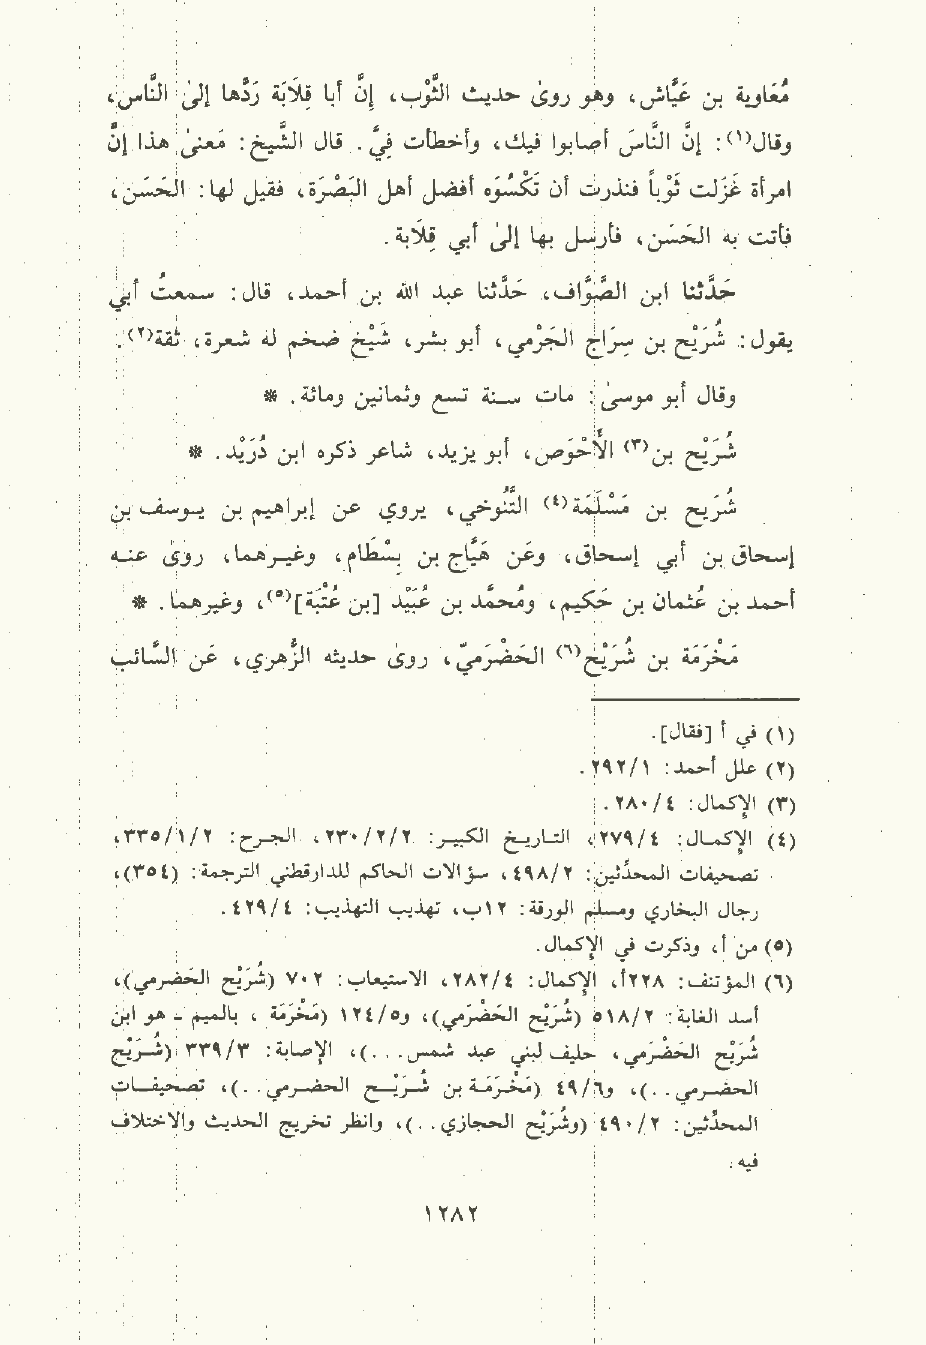 مُعَاوية بن عَيَّاش، وهو رَوىٰ حديث الثَّوْب، إنَّ أبا قِلَابَة رَدَّها إلىٰ النَّاس،
وقال(١): إنَّ النَّاسَ أصابوا فيك، وأخطأت فِيَّ. قال الشَّيخ: مَعنىٰ هذا إنَّ
امرأة غَزَلت ثَوْباً فنذرت أن تَكْسُوَه أفضل أهل البَصْرَة، فقيل لها: الحَسَن،
فأتت به الحَسَن، فأرسل بها إلىٰ أبي قِلَابة.
حَدَّثنا ابن الصَّوَّاف، حَدَّثنا عبد الله بن أحمد، قال: سمعتُ أبي
يقول: شُرَيْح بن سِرَاج الجَرْمي، أبو بشر، شَيْخ ضخم له شعرة، ثقة(٢).
وقال أبو موسىٰ: مات سنة تسع وثمانين ومائة. *
شُرَيْح بن(٣) الأَحْوَص، أبو يزيد، شاعر ذكره ابن دُرَيْد. *
شُريح بن مَسْلَمَة(٤) التَّنُوخي، يروي عن إبراهيم بن يوسف بن
إسحاق بن أبي إسحاق، وعن هَيَّاج بن بِسْطَام، وغيرهما، روىٰ عنه
أحمد بن عُثمان بن حَكيم، ومحُمَّد بن عُبَيْد [بن عُتْبَة](٥)، وغيرهما. *
مَخْرَمَة بن شُرَيْح(٦) الحَضْرَميّ، روىٰ حديثه الزُّهري، عَن السَّائب
(١) في أ [فقال].
(٢) علل أحمد: ٢٩٢/١.
(٣) الإكمال: ٢٨٠/٤.
(٤) الإكمال: ٢٧٩/٤، التاريخ الكبير: ٢٣٠/٢/٢، الجرح: ٣٣٥/١/٢،
تصحيفات المحدِّثين: ٤٩٨/٢، سؤالات الحاكم للدارقطني الترجمة: (٣٥٤)،
رجال البخاري ومسلم الورقة: ١٢ب، تهذيب التهذيب: ٤٢٩/٤.
(٥) من أ، وذكرت في الإكمال.
(٦) المؤتنف: ٢٢٨أ، الإكمال: ٢٨٢/٤، الاستيعاب: ٧٠٢ (شُرَيْح الحَضرمي)،
أسد الغابة: ٥١٨/٢ (شُرَيْح الحَضْرَمي)، و١٢٤/٥ (مَخْرَمَة، بالميم - وهو ابن
شُرَيْح الحَضْرَمي، حليف لبني عبد شمس...)، الإصابة: ٣٣٩/٣ (شُرَيْح
الحضرمي..)، و٤٩/٦ (مَخْرَمَة بن شُرَيْح الحضرمي..)، تصحيفات
المحدِّثين: ٤٩٠/٢ (وشُرَيْح الحجازي..)، وانظر تخريج الحديث والاختلاف
فيه.
١٢٨٢